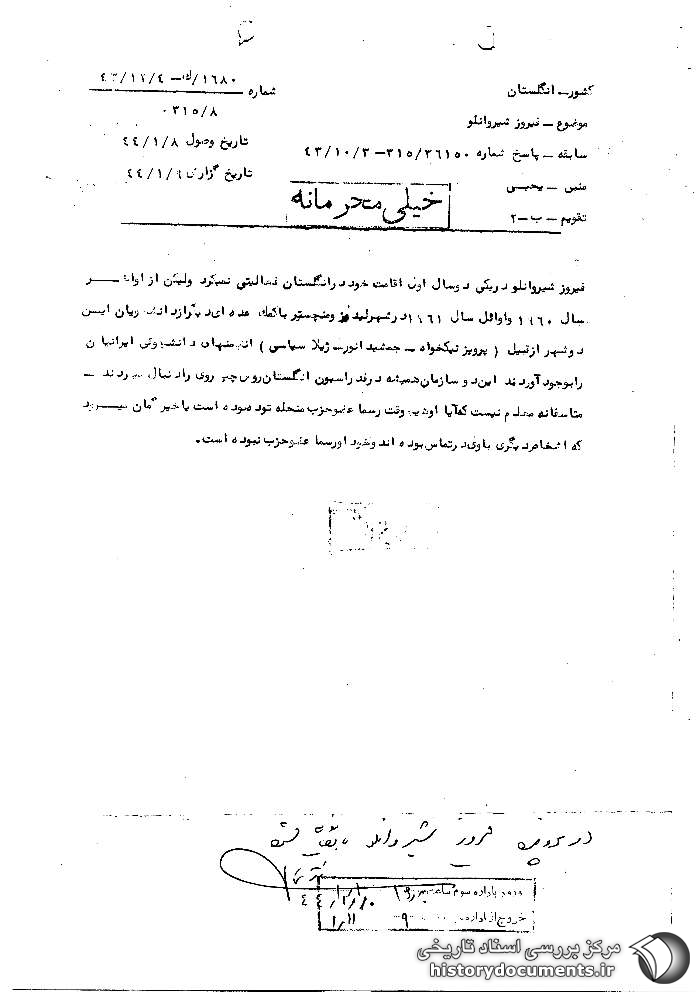 کشور ــ انگلستان
موضوع ــ فیروز شیروانلو
سابقه ــ پاسخ شماره ۳۱۵/۲۶۱۵۰ــ۴۳/۱۰/۳
منبع ــ یحیی
تقویم ــ ب ــ ۲
شماره ۱۶۸۰/ك ــ ۴۳/۱۲/۴
۰۳۱۵/۸
تاریخ وصول ۴۴/۱/۸
تاریخ گزارش ۴۴/۱/۹
خیلی محرمانه
فیروز شیروانلو در یکی دو سال اول اقامت خود در انگلستان فعالیتی نمیکرد ولیکن از اواخر
سال ۱۹۶۰ و اوائل سال ۱۹۶۱ در شهر لیدز و منچستر با کمك عده ای دیگر از دانشجویان ایسن
دو شهر از قبیل ( پرویز نیکخواه ــ جمشید انور ــ ژیلا سیاسی ) انجمنهای دانشجوئی ایرانیان
را بوجود آوردند این دو سازمان همیشه در فدراسیون انگلستان روش چپ روی را دنبال میکردند ــ
متاسفانه معلوم نیست که آیا او هیچوقت رسما عضو حزب منحله توده بوده است یا خیر گمان میرود
که اشخاص دیگری با وی در تماس بوده اند و خود او رسما عضو حزب نبوده است.
در پرونده فیروز شیروانلو بایگانی شود
ورود باداره سوم ساعت
خروج از اداره ۹
مرکز بررسی اسناد تاریخی
historydocuments.ir